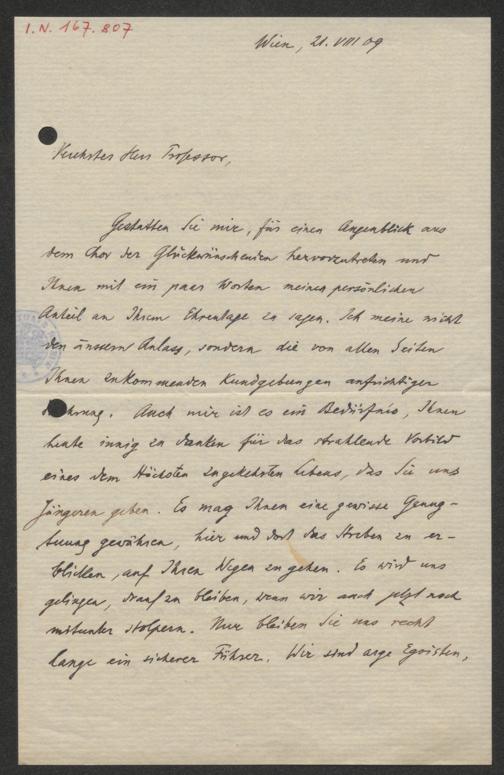 I.N. 167.807
Wien, 21. VIII 09
Verehrter Herr Professor,
Gestatten Sie mir, für einen Augenblick aus
dem Chor der Glückwünschenden hervorzutreten und
Ihnen mit ein paar Worten meinen persönlichen
Anteil an Ihrem Ehrentage zu sagen. Ich meine nicht
den äussern Anlass, sondern die von allen Seiten
Ihnen zukommenden Kundgebungen aufrichtiger
Auch mir ist es ein Bedürfnis, Ihnen
heute innig zu danken für das strahlende Vorbild
eines dem Höchsten zugekehrten Lebens, das Sie uns
Jüngeren geben. Es mag Ihnen eine gewisse Genug-
tuung gewähren, hier und dort das Streben zu er-
blicken, auf Ihren Wegen zu gehen. Es wird uns
gelingen, drauf zu bleiben, wenn wir auch jetzt noch
mitunter stolpern. Nur bleiben Sie uns recht
lange ein sicherer Führer. Wir sind arge Egoisten,